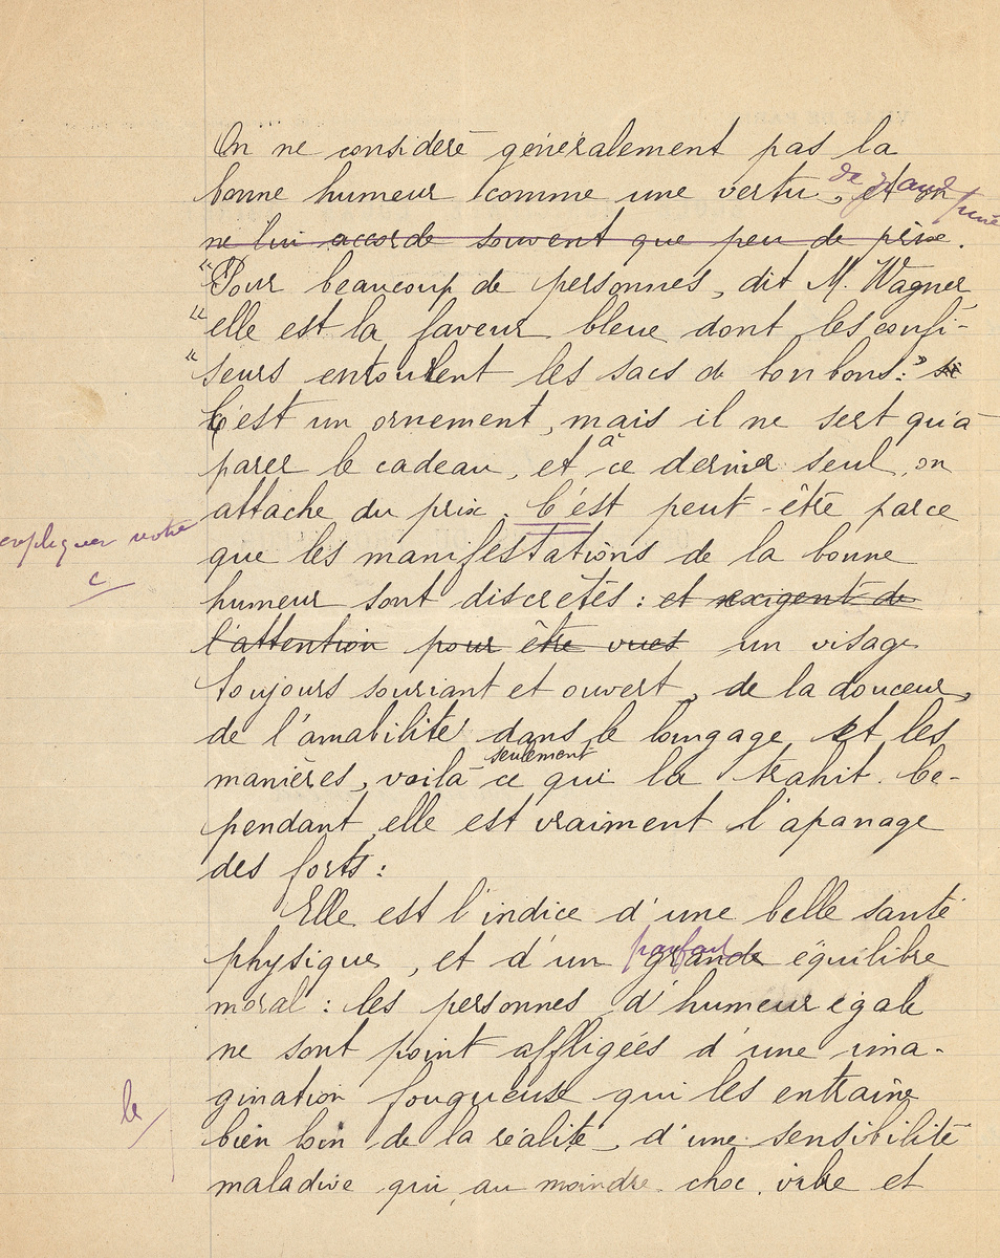 On ne considère généralement pas la
bonne humeur comme une vertu de grand, et on
ne lui accorde souvent que peu de prix.
"Pour beaucoup de personnes, dit M. Wagner
"elle est la faveur bleue dont les confi-
"seurs entourent les sacs de bonbons:"
C'est un ornement, mais il ne sert qu'à
parer le cadeau, et à ce dernier seul, on
attache du prix. C'est peut-être parce
expliquer votre
c
que les manifestations de la bonne
humeur sont discrètes: et exigent de
l'attention pour être vues un visage
toujours souriant et ouvert, de la douceur,
de l'amabilité dans le langage et les
manières, voilà seulement ce qui la trahit. Ce-
pendant, elle est vraiment l'apanage
des forts:
Elle est l'indice d'une belle santé
physique, et d'un grande parfait équilibre
moral: les personnes d'humeur égale
ne sont point affligées d'une ima-
gination fougueuse qui les entraîne
le
bien loin de la réalité, d'une sensibilité
maladive qui, au moindre choc, vibre et